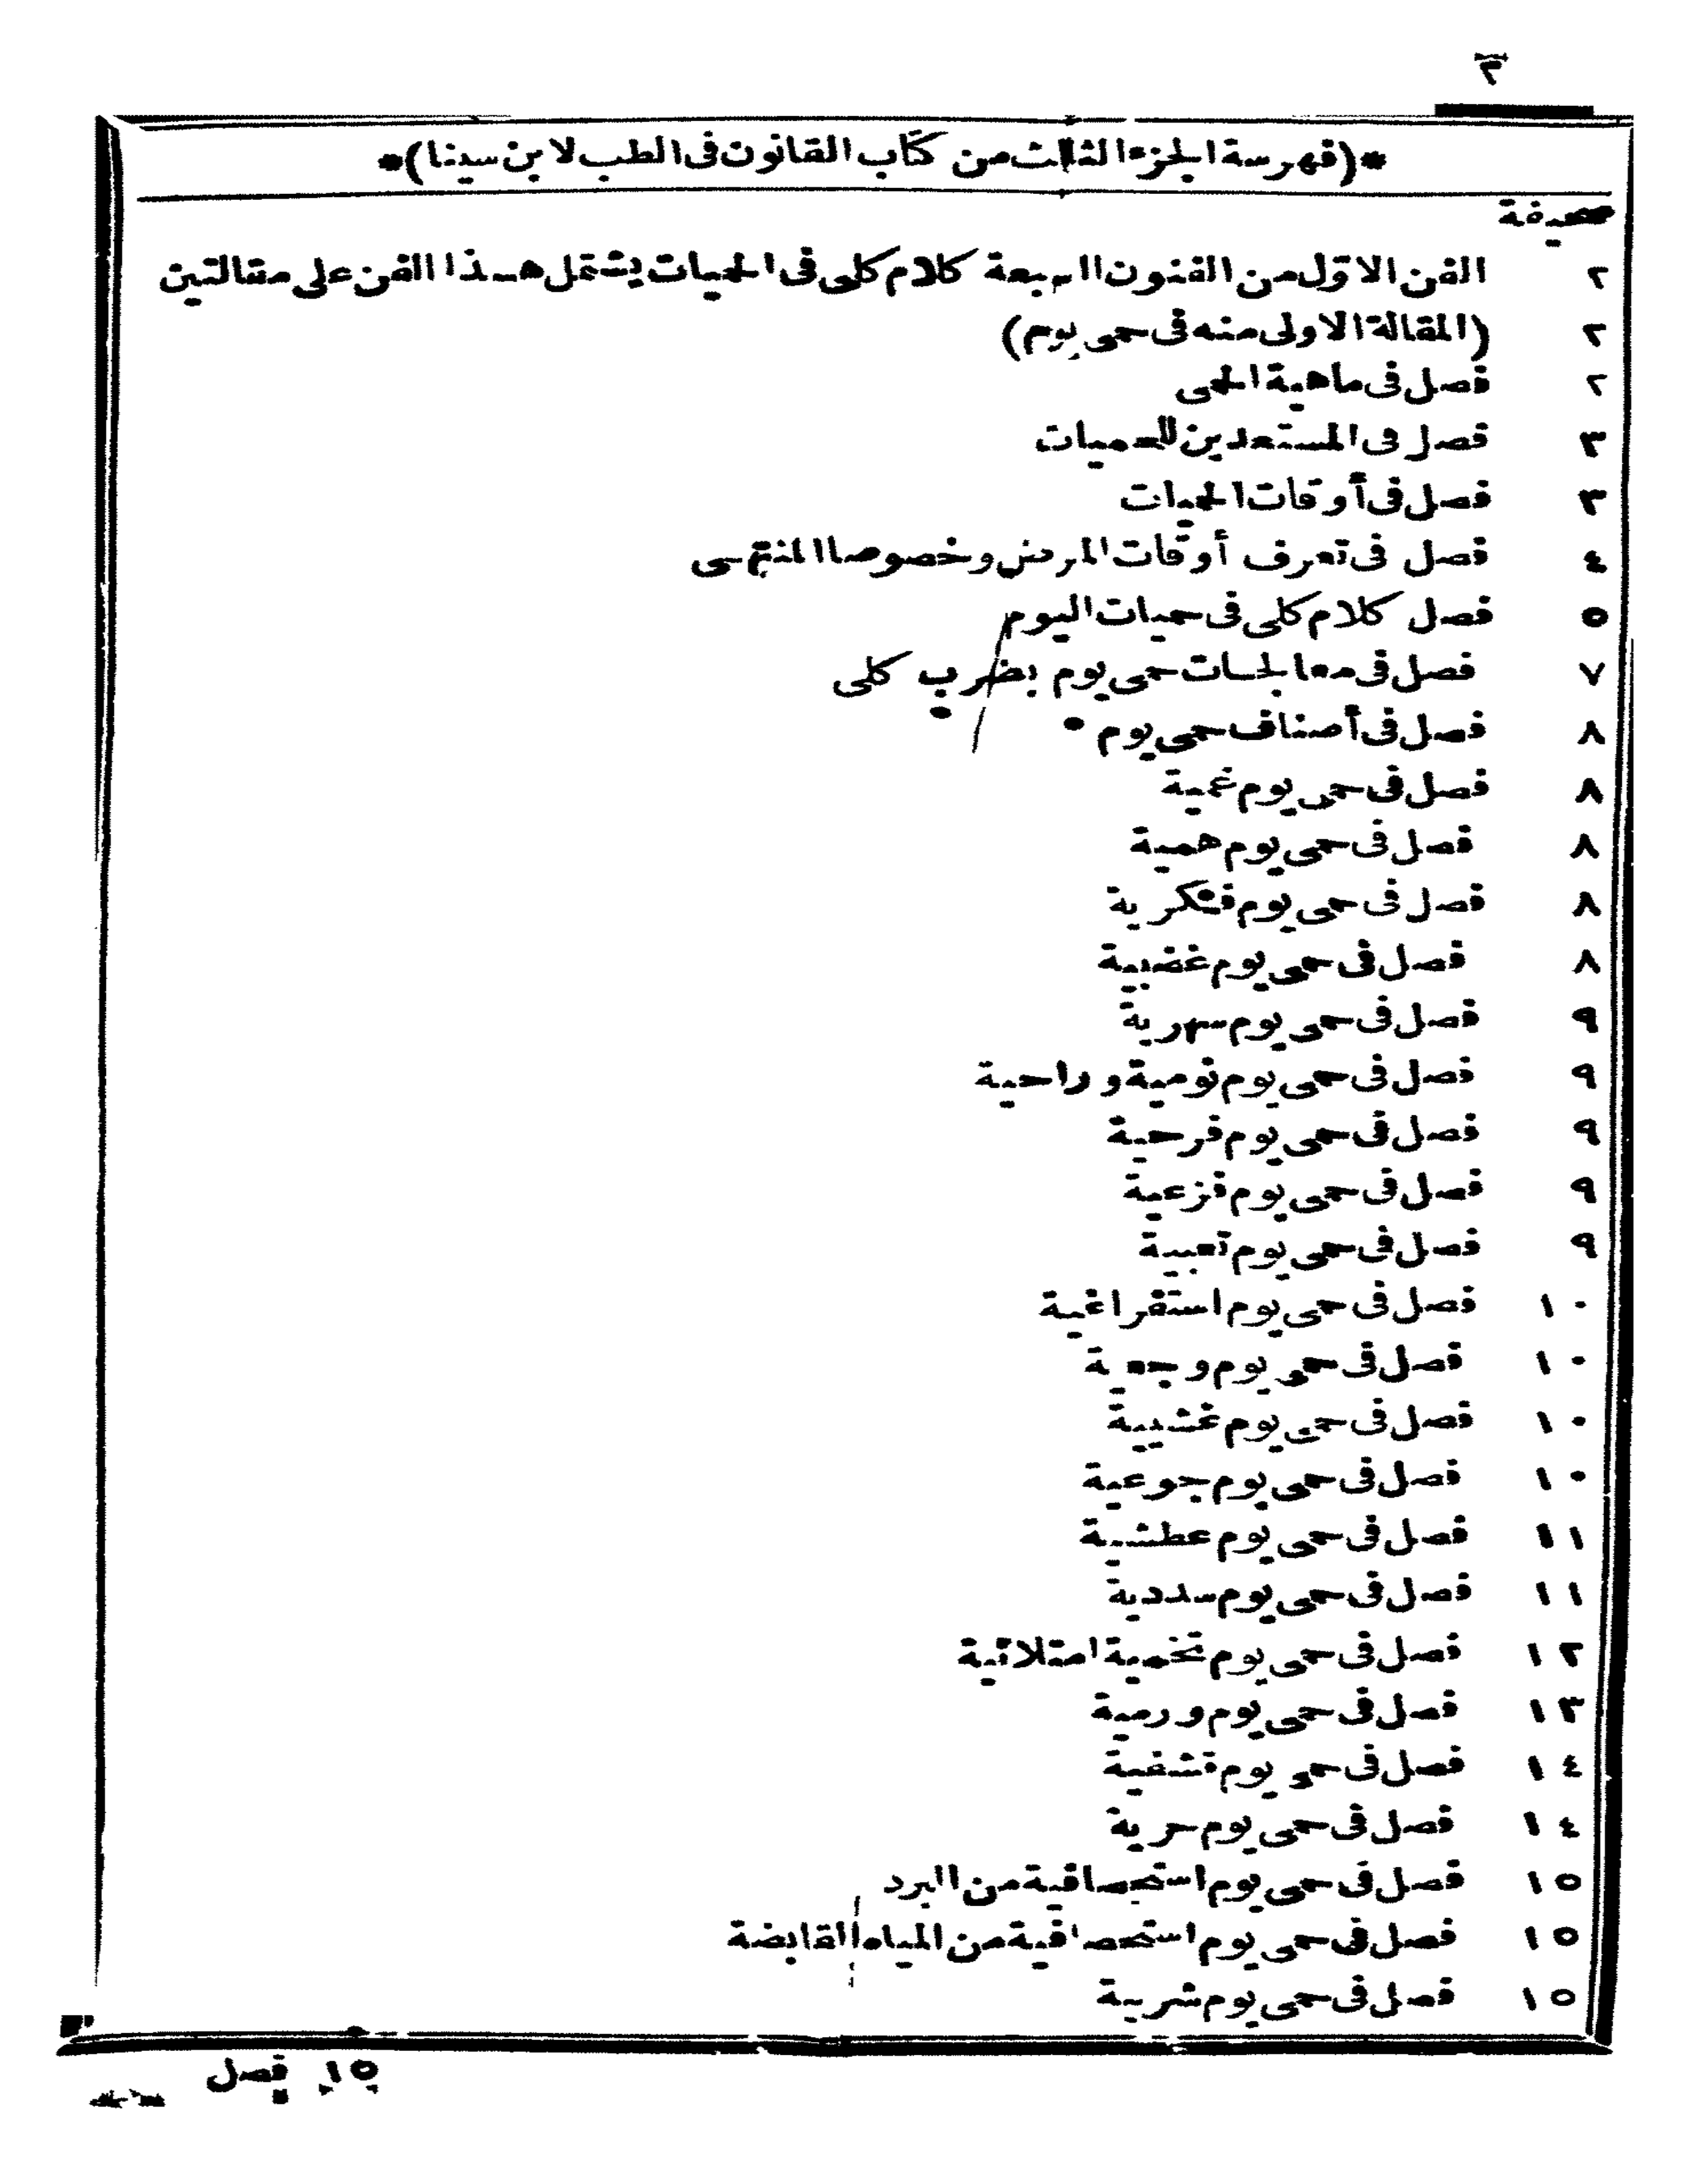 ٣
*(فهرسة الجزء الثالث من كتاب القانون فى الطب لابن سينا)*
صحيفة
٢ الفن الاوّل من الفنون السبعة كلام كلى فى الحميات يشتمل هذا الفن على مقالتين
٢ (المقالة الاولى منه فى حمى يوم)
٢ فصل فى ماهية الحمى
٣ فصل فى المستعدين للحميات
٣ فصل فى أوقات الحميات
٤ فصل فى تعرف أوقات المرض وخصوصا المنتهى
٥ فصل كلام كلى فى حميات اليوم
٧ فصل فى معالجات حمى يوم بضرب كلى
٨ فصل فى أصناف حمى يوم
٨ فصل فى حمى يوم غمية
٨ فصل فى حمى يوم همية
٨ فصل فى حمى يوم فكرية
٨ فصل فى حمى يوم غضبية
٩ فصل فى حمى يوم سهرية
٩ فصل فى حمى يوم نومية وراحية
٩ فصل فى حمى يوم فرحية
٩ فصل فى حمى يوم فزعية
٩ فصل فى حمى يوم تعبية
١٠ فصل فى حمى يوم استفراغية
١٠ فصل فى حمى يوم وجعية
١٠ فصل فى حمى يوم غشيية
١٠ فصل فى حمى يوم جوعية
١١ فصل فى حمى يوم عطشية
١١ فصل فى حمى يوم سددية
١٢ فصل فى حمى يوم تخمية امتلائية
١٣ فصل فى حمى يوم ورمية
١٤ فصل فى حمى يوم قشفية
١٤ فصل فى حمى يوم حرية
١٥ فصل فى حمى يوم استحصافية من البرد
١٥ فصل فى حمى يوم استحصافية من المياه القابضة
١٥ فصل فى حمى يوم شربية
١٥ فصل